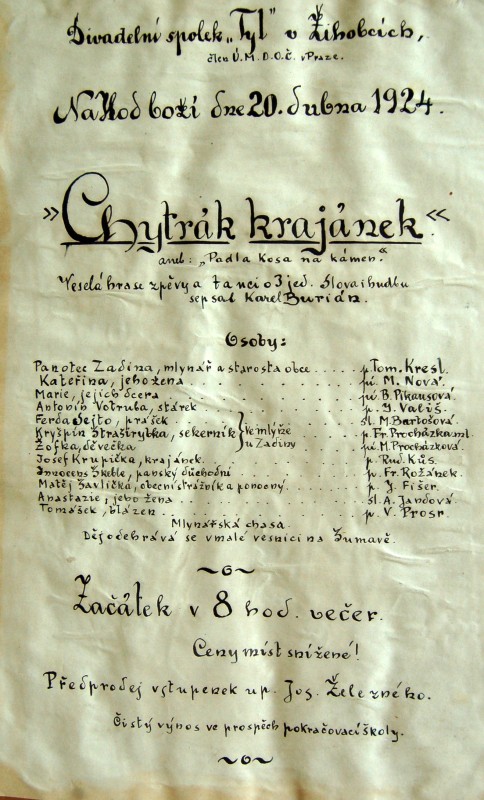 Divadelní spolek „Tyl" v Žihobcích,
člen Ú.M.D.O.Č. v Praze.
Na Hod boží dne 20. dubna 1924.
»Chytrák krajánek«
aneb: „Padla kosa na kámen."
Veselá hra se zpěvy a tanci o 3 jed. Slova i hudbu
sepsal Karel Burián.
Osoby:
Pantotec Zadina, mlynář a starosta obce . . . . . p. Tom. Kresl.
Kateřina, jeho žena . . . . . pí. M. Nová.
Marie, jejich dcera . . . . . pí. B. Pikausová
Antonín Votruba, stárek . . . . . p. J. Vališ.
Ferda Sejto, prášek . . . . . sl. M. Bartošová
Kryšpín Straširybka, sekerník } ve mlýně p. Fr. Procházka ml.
Žofka, děvečka } u Zadiny pí. M. Procházková.
Josef Krupička, krajánek . . . . . p. Rud. Kůs.
Innocens Skeble, panský důchodní . . . . . p. Fr. Rožánek.
Matěj Zavlička, obecní strážník a ponocný . . . . . p. J. Fišer.
Anastazie, jeho žena . . . . . sl. A. Jandová
Tomášek, blázen . . . . . p. V. Prosr
Mlynářská chasa.
Děj odehrává se v malé vesnici na Šumavě.
Začátek v 8 hod. večer.
Ceny míst snížené!
Předprodej vstupenek u p. Jos. Železného.
Čistý výnos ve prospěch pokračovací školy.